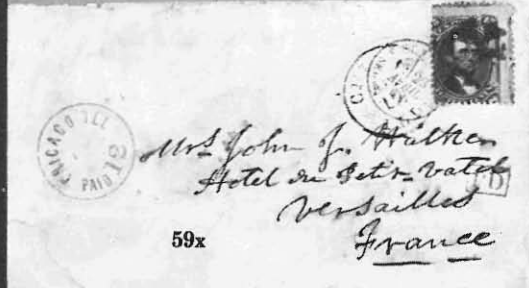 CHICAGO ILL
PAID 12
Mrs John J. Walker
Hotel du Petit-Vatel
Versailles
France
PD
59x